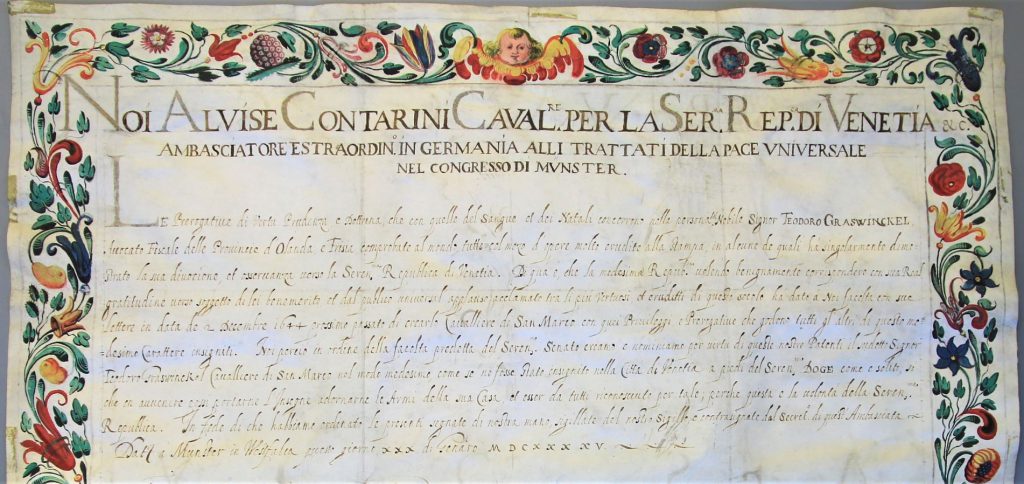 NOI ALVISE CONTARINI CAVAL.RE PER LA SER.MA REP.CA DI VENETIA &C.
AMBASCIATORE ESTRAORDIN.O IN GERMANIA ALLI TRATTATI DELLA PACE VNIVERSALE
NEL CONGRESSO DI MVNSTER.
LE Prerogatiue di Vertù Prudenza, e Dottrina, che con quelle del Sangue et dei Natali concorrono nella persona Nobile Signor TEODORO GRASWINCKEL
Auocato Fiscale delle Prouincie d'Olanda, e Frisia comprobate al mondo col mezo d'opere molto erudite alla Stampa, in alcune de quali ha singolarmente dimo-
strato la sua diuotione, et osseruanza uerso la Seren.ma Republica di Venetia. Di qua è, che la medesima Republ.ca uolendo benignamente corrispondere con sua Real
gratitudine uerso soggetto di lei benemerito et dal publico uniuersal applauso proclamato tra li più uertuosi et eruditi di questo secolo ha dato à Noi facoltà con sue
lettere in data de 2 Decembre 1644 prossimo passato di crearlo Caualliere di San Marco con quei Priuileggi e Prerogatiue che godono tutti gl'altri di questo me-
desimo Carattere insigniti. Noi perciò in ordine della facoltà predetta del Seren.mo Senato creamo e nominiamo per uirtù di queste nostre Patenti il sudetto Signor
Teodoro Graswinckel Caualliere di San Marco nel modo medesimo, come se ne fosse stato insignito nella Città di Venetia a piedi del Seren.mo DOGE come è solito, si
che en auuenire possi portarne l'Insegne adornarne le Armi della sua Casa et esser da tutti riconosciuto per tale, perche questa è la uolontà della Seren.ma
Republica. In fede di che habbiamo ordinato le presenti segnate di nostra mano, sigillate del nostro Sigillo, e contrasignate dal Secret.o di quest'Ambasciata
Dat.e a Munster in Westfalia questo giorno XXX di Genaro MDCXXXXV.